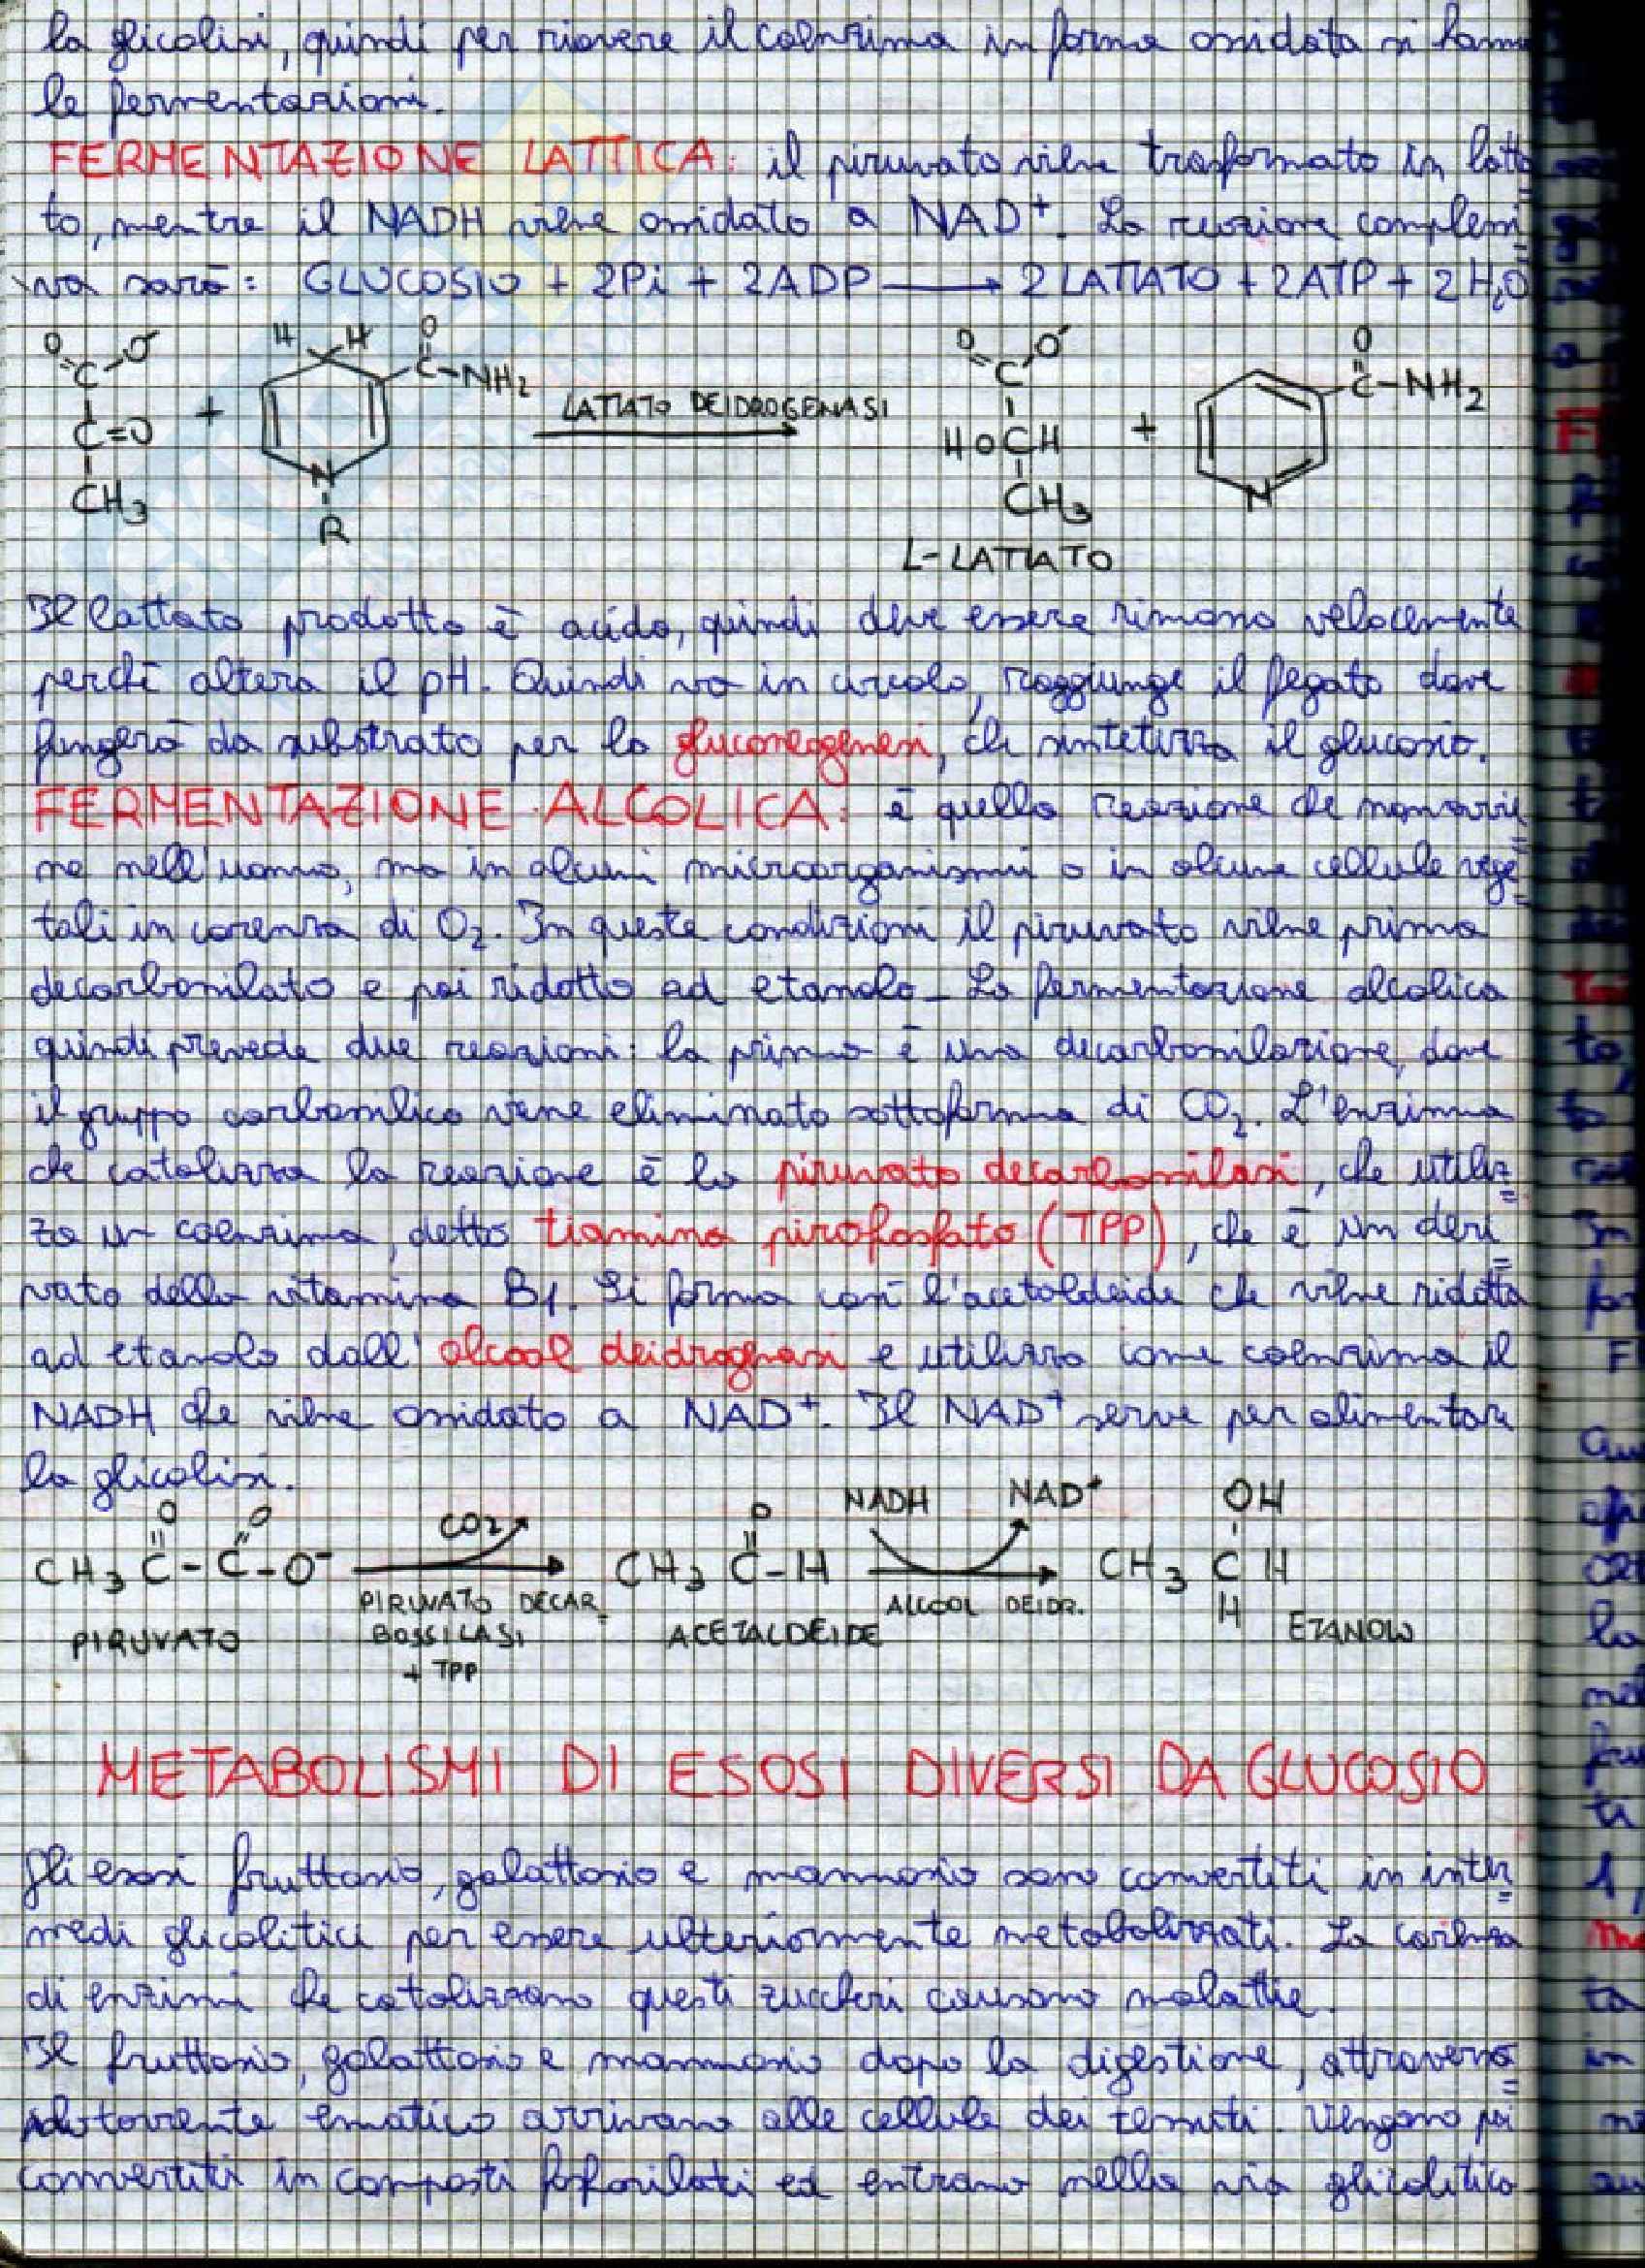 la glicolisi, quindi per riavere il coenzima in forma ossidata si hanno
le fermentazioni.
FERMENTAZIONE LATTICA: il piruvato viene trasformato in latta
to, mentre il NADH viene ossidato a NAD⁺. La reazione complessi
va sarà: GLUCOSIO + 2Pi + 2ADP → 2 LATTATO + 2ATP + 2 H₂O
O O⁻ H H O O O⁻ O
C C-NH₂ C C-NH₂
C=O + LATTATO DEIDROGENASI HOCH +
CH₃ N CH₃ N
R
L-LATTATO
Il lattato prodotto è acido, quindi deve essere rimosso velocemente
perchè altera il pH. Quindi va in circolo, raggiunge il fegato dove
fungerà da substrato per la gluconeogenesi, che sintetizza il glucosio.
FERMENTAZIONE ALCOLICA: è quella reazione che non avvie
ne nell'uomo, ma in alcuni microorganismi o in alcune cellule vege
tali in carenza di O₂. In queste condizioni il piruvato viene prima
decarbossilato e poi ridotto ad etanolo. La fermentazione alcolica
quindi prevede due reazioni: la prima è una decarbossilazione, dove
il gruppo carbossilico viene eliminato sottoforma di CO₂. L'enzima
che catalizza la reazione è la piruvato decarbossilasi, che utiliz
za un coenzima, detto tiamina pirofosfato (TPP), che è un deri
vato della vitamina B1. Si forma così l'acetaldeide che viene ridotta
ad etanolo dall'alcool deidrogenasi e utilizza come coenzima il
NADH che viene ossidato a NAD⁺. Il NAD⁺ serve per alimentare
la glicolisi.
O O CO₂ O NADH NAD⁺ OH
CH₃ C-C-O⁻ CH₃ C-H CH₃ C H
PIRUVATO DECAR ALCOOL DEIDR. H
PIRUVATO BOSSILASI ACETALDEIDE ETANOLO
+ TPP
METABOLISMI DI ESOSI DIVERSI DA GLUCOSIO
Gli esosi fruttosio, galattosio e mannosio sono convertiti in inter
medi glicolitici per essere ulteriormente metabolizzati. La carenza
di enzimi che catalizzano questi zuccheri causano malattie.
Il fruttosio, galattosio e mannosio dopo la digestione, attraverso
torrente ematico arrivano alle cellule dei tessuti. Vengono poi
convertiti in composti fosforilati ed entrano nella via glicolitica